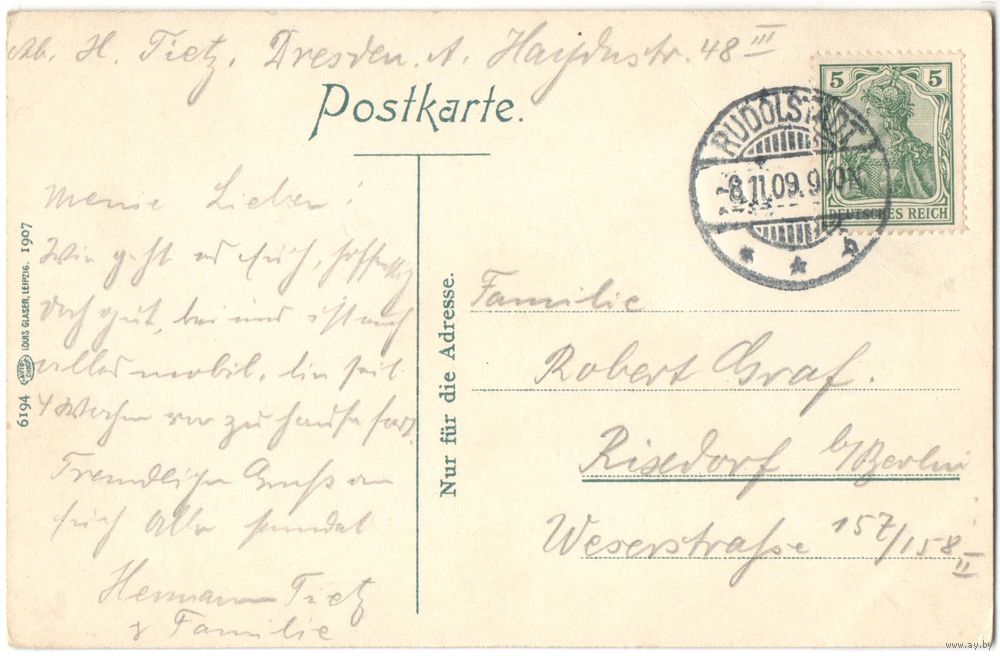 Ab. H. Tietz. Dresden. A. Haydnstr. 48 III
Postkarte.
5 5
DEUTSCHES REICH
RUDOLSTADT
-8.11.09. 9
Meine Lieben!
Wie geht es Euch, hoffentlich
doch gut, bei uns ist auch
alles mobil, bin seit
4 Wochen von zu Hause fort.
Freundlichen Gruß an
Euch Alle sendet
Hermann Tietz
& Familie
6194 LOUIS GLASER, LEIPZIG. 1907
Nur für die Adresse.
Familie
Robert Graf.
Rixdorf b/Berlin
Weserstraße 157/158 II
www.ay.by